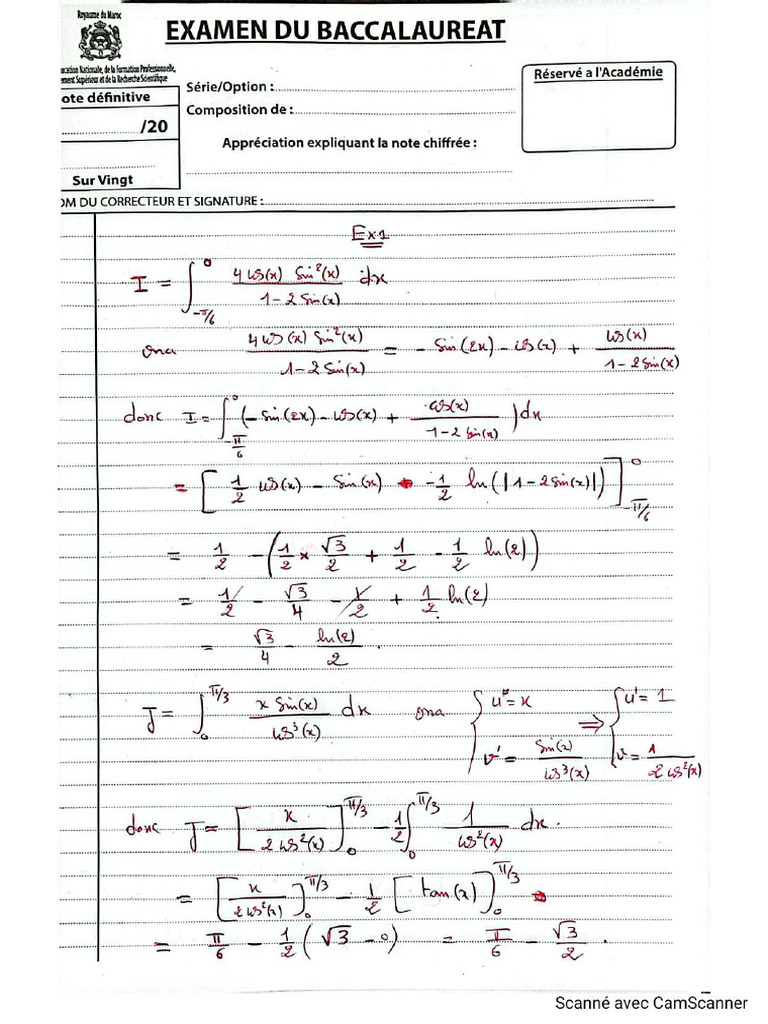 Royaume du Maroc
EXAMEN DU BACCALAUREAT
ucation Nationale, de la Formation Professionnelle,
ement Supérieur et de la Recherche Scientifique
ote définitive
/20
Sur Vingt
Série/Option :
Composition de :
Appréciation expliquant la note chiffrée :
Réservé a l'Académie
OM DU CORRECTEUR ET SIGNATURE :
Ex1
I = ∫_{-π/6}^{0} (4cos(x) sin²(x))/(1-2sin(x)) dx
ona (4cos(x) sin²(x))/(1-2sin(x)) = -sin(2x) - cos(x) + cos(x)/(1-2sin(x))
donc I = ∫_{-π/6}^{0} (-sin(2x) - cos(x) + cos(x)/(1-2sin(x))) dx
= [1/2 cos(x) - sin(x) - 1/2 ln(|1-2sin(x)|)]_{-π/6}^{0}
= 1/2 - (1/2 × √3/2 + 1/2 - 1/2 ln(2))
= 1/2 - √3/4 - 1/2 + 1/2 ln(2)
= √3/4 - ln(2)/2 .
J = ∫_{0}^{π/3} (x sin(x))/(cos³(x)) dx ona { u = x ; v' = sin(x)/cos³(x) ⇒ { u' = 1 ; v = 1/(2cos²(x))
donc J = [x/(2cos²(x))]_{0}^{π/3} - 1/2 ∫_{0}^{π/3} 1/(cos²(x)) dx .
= [x/(2cos²(x))]_{0}^{π/3} - 1/2 [tan(x)]_{0}^{π/3}
= π/6 - 1/2 (√3 - 0) = π/6 - √3/2 .
Scanné avec CamScanner